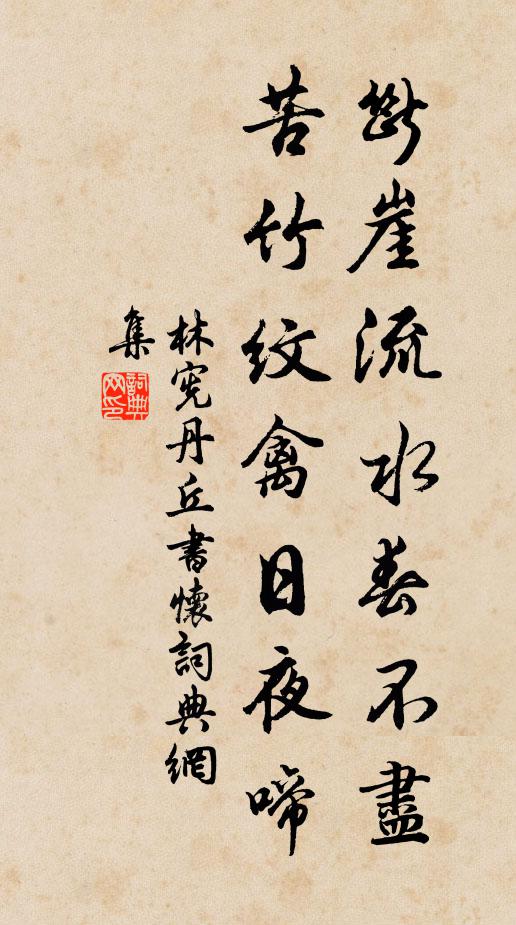 斷崖流水春不盡
苦竹紋禽日夜啼
林宪丹丘書懷詞典網
集
詞典
网印